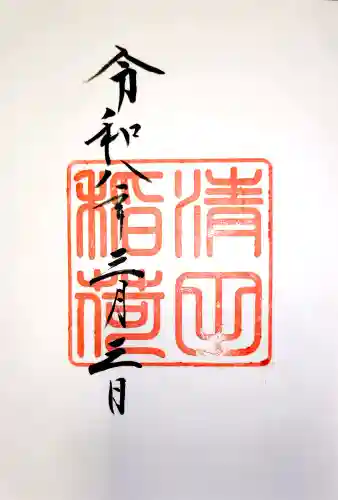 令和八年三月三日
清山
稲荷